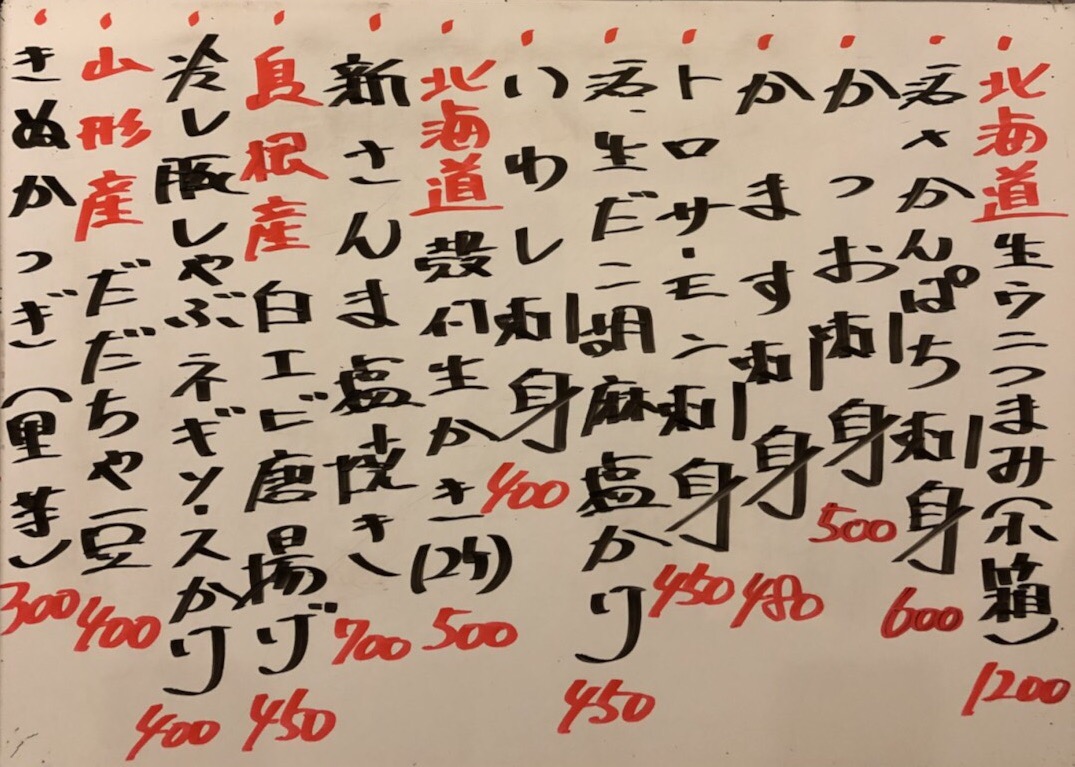 北海道生ウニつまみ(小箱) 1200
活〆かんぱち刺身 600
かつお刺身 500
かます刺身 480
トロサーモン刺身 450
活生だこ胡麻塩かけ 450
いわし刺身 400
北海道殻付生かき(2ヶ) 500
新さんま塩焼き 700
島根産白エビ唐揚げ 450
冷し豚しゃぶネギソースかけ 400
山形産だだちゃ豆 400
きぬかつぎ(里芋) 300